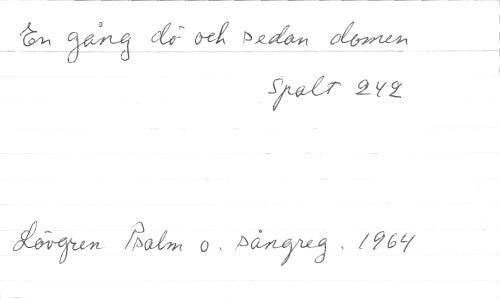 En gång dö och sedan domen
Spalt 242
Lövgren Psalm o. sångreg. 1964